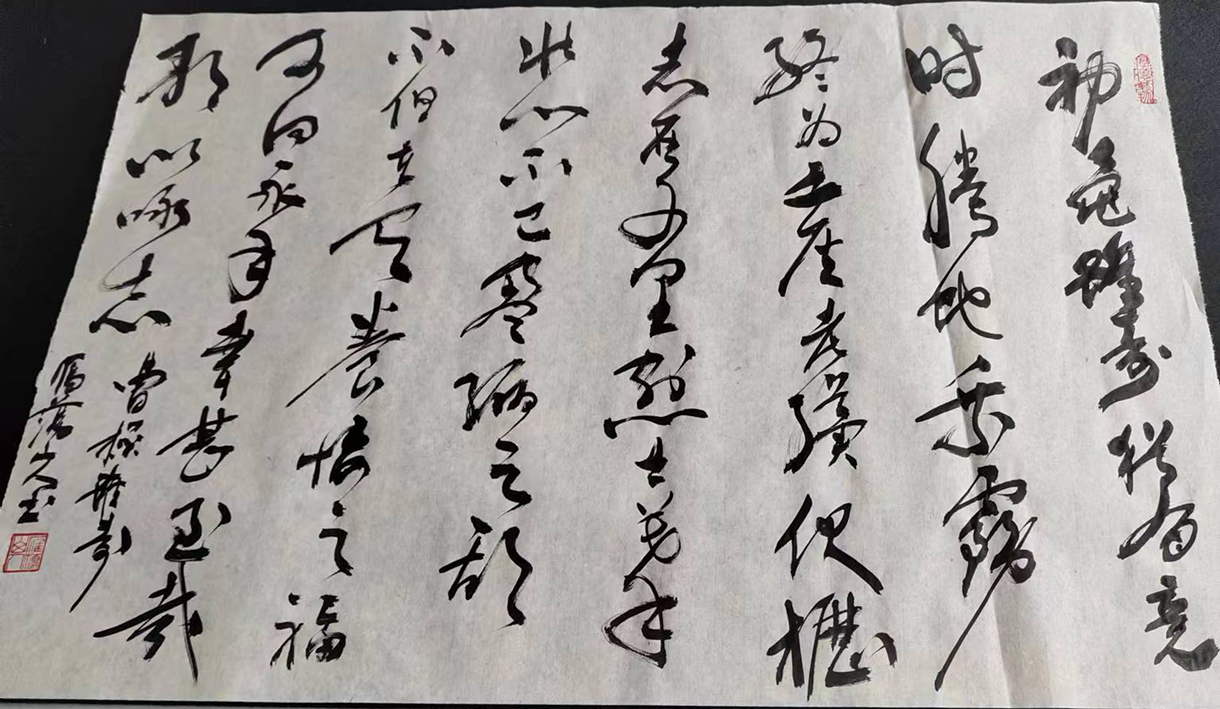 神龜雖寿猶有竟
时腾蛇乘霧
终为土灰老骥伏櫪
志在千里烈士暮年
壮心不已盈缩之期
不但在天养怡之福
可曰永年幸甚至哉
歌以咏志
曹操 寿